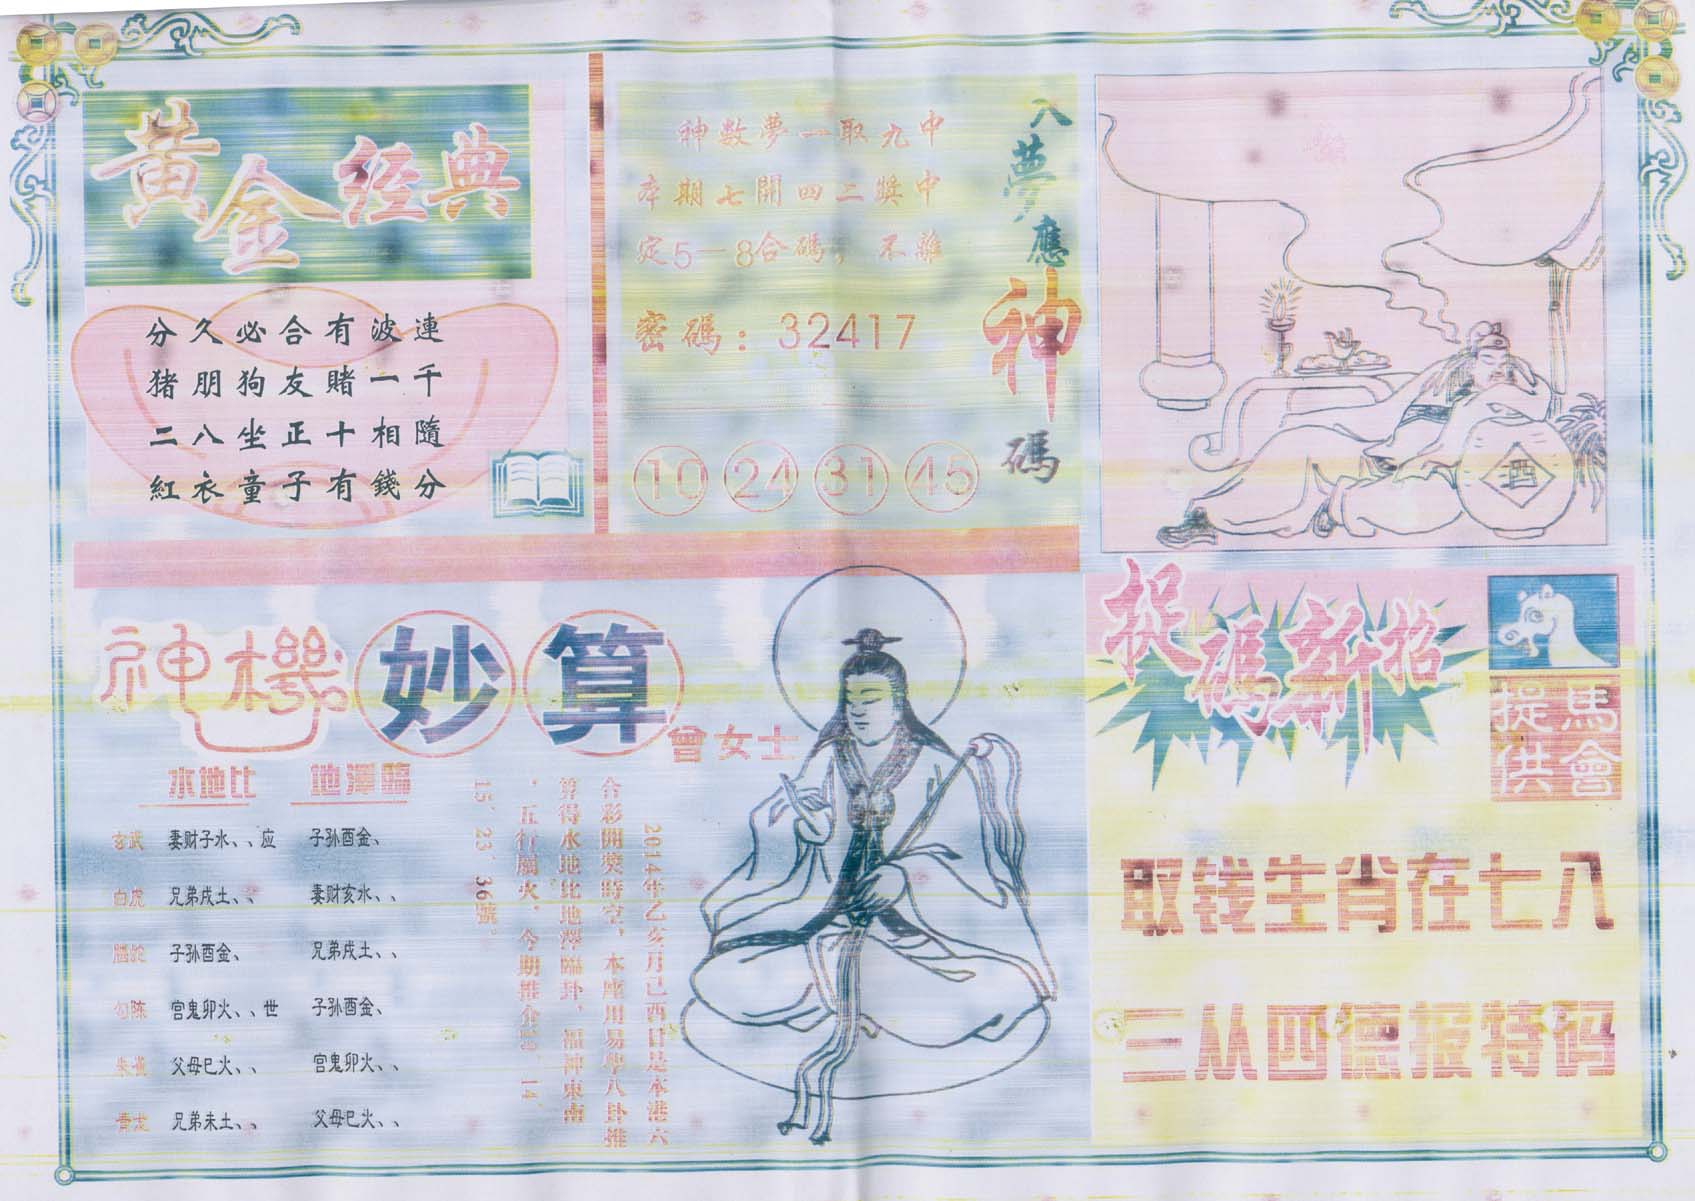 黃金經典
分久必合有波連
猪朋狗友賭一千
二八坐正十相隨
紅衣童子有錢分
入夢應神碼
神數夢一取九中
本期七開四二獎中
定5—8合碼，不離
密碼：32417
10 24 31 45
酒
神機妙算
曾女士
水地比 地澤臨
玄武 妻财子水、、应 子孙酉金、
白虎 兄弟戌土、、 妻财亥水、、
螣蛇 子孙酉金、 兄弟戌土、、
勾陈 官鬼卯火、、世 子孙酉金、
朱雀 父母巳火、、 官鬼卯火、、
青龙 兄弟未土、、 父母巳火、、
2014年乙亥月己酉日是本港六
合彩開獎時空，本座用易學八卦推
算得水地比地澤臨卦，福神東南
，五行屬火，今期推介13、14、
15、23、36號。
捉碼新招
馬會
提供
取钱生肖在七八
三从四德报特码